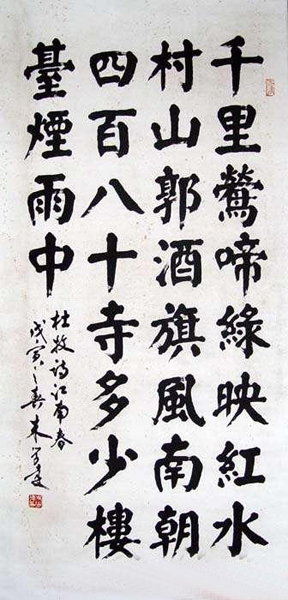 千里鶯啼綠映紅水
村山郭酒旗風南朝
四百八十寺多少樓
臺煙雨中
杜牧詩江南春
戊寅之春